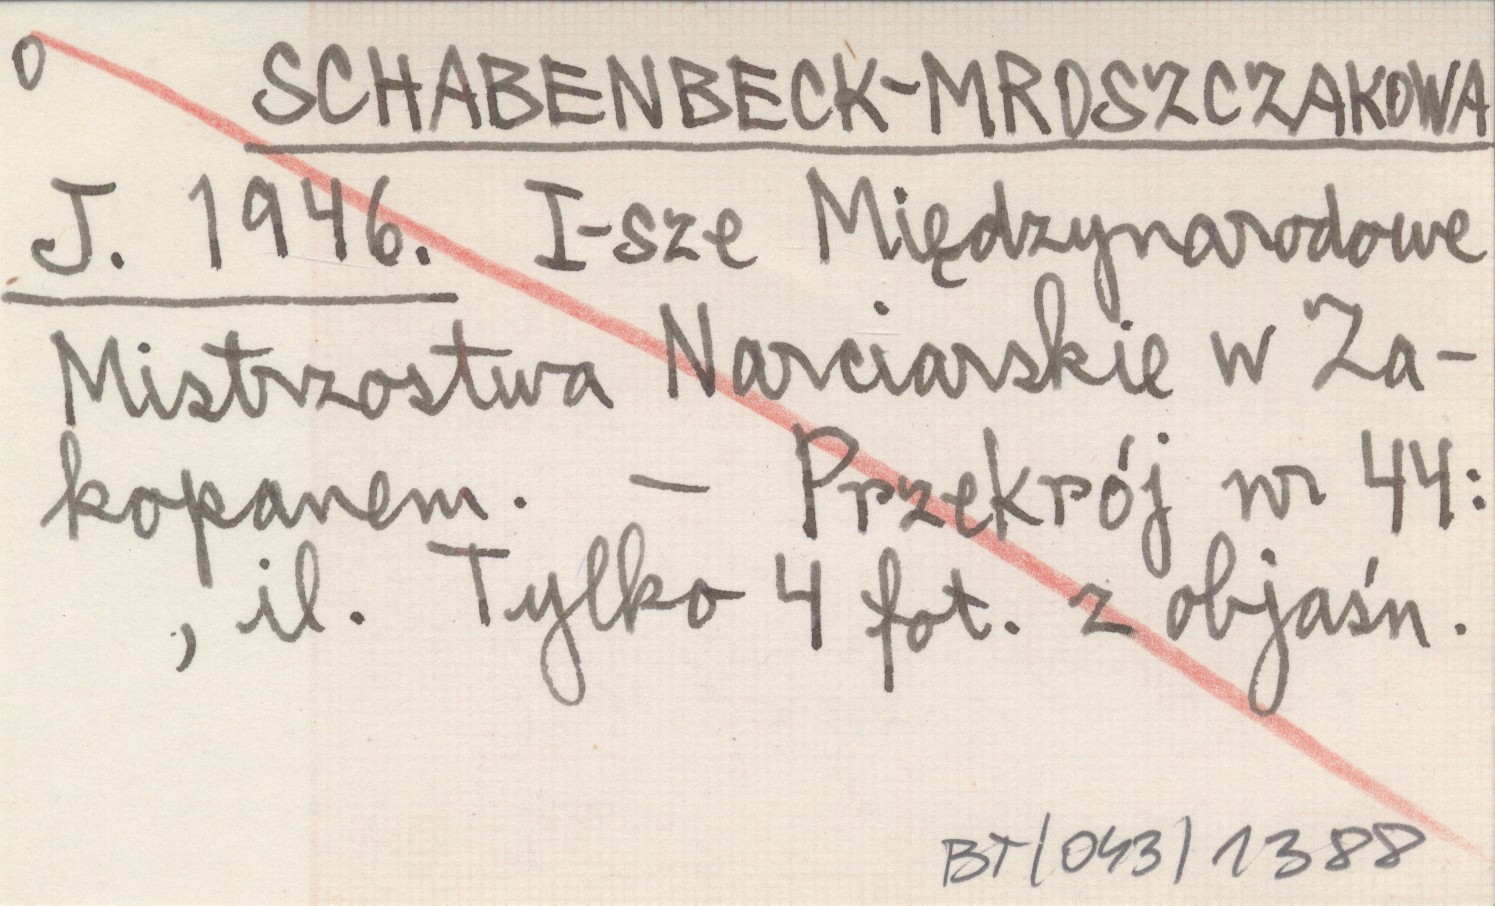 0 SCHABENBECK-MROSZCZAKOWA
J. 1946. I-sze Międzynarodowe
Mistrzostwa Narciarskie w Za-
kopanem. – Przekrój nr 44:
, il. Tylko 4 fot. z objaśn.
BT/043/1388